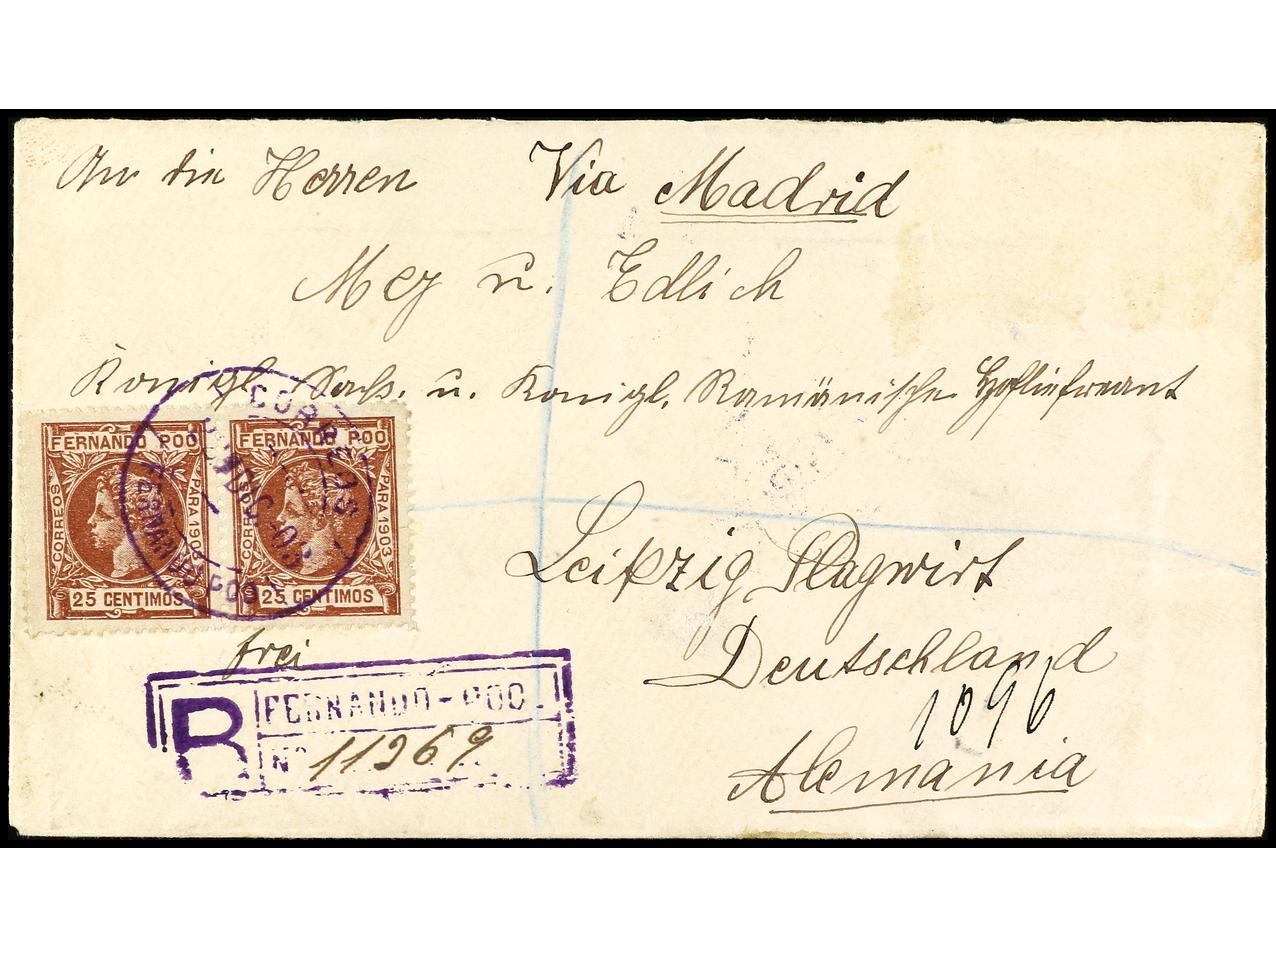 An die Herren Via Madrid
Mey u. Edlich
Königl. Sächs. u. Königl. Rumänische Hoflieferant
FERNANDO POO FERNANDO POO
CORREOS PARA 1903 CORREOS PARA 1903
25 CENTIMOS 25 CENTIMOS
CORREOS
FERNANDO POO
Leipzig Plagwirt
frei
Deutschland
1096
R FERNANDO-POO
Nº 11969
Alemania